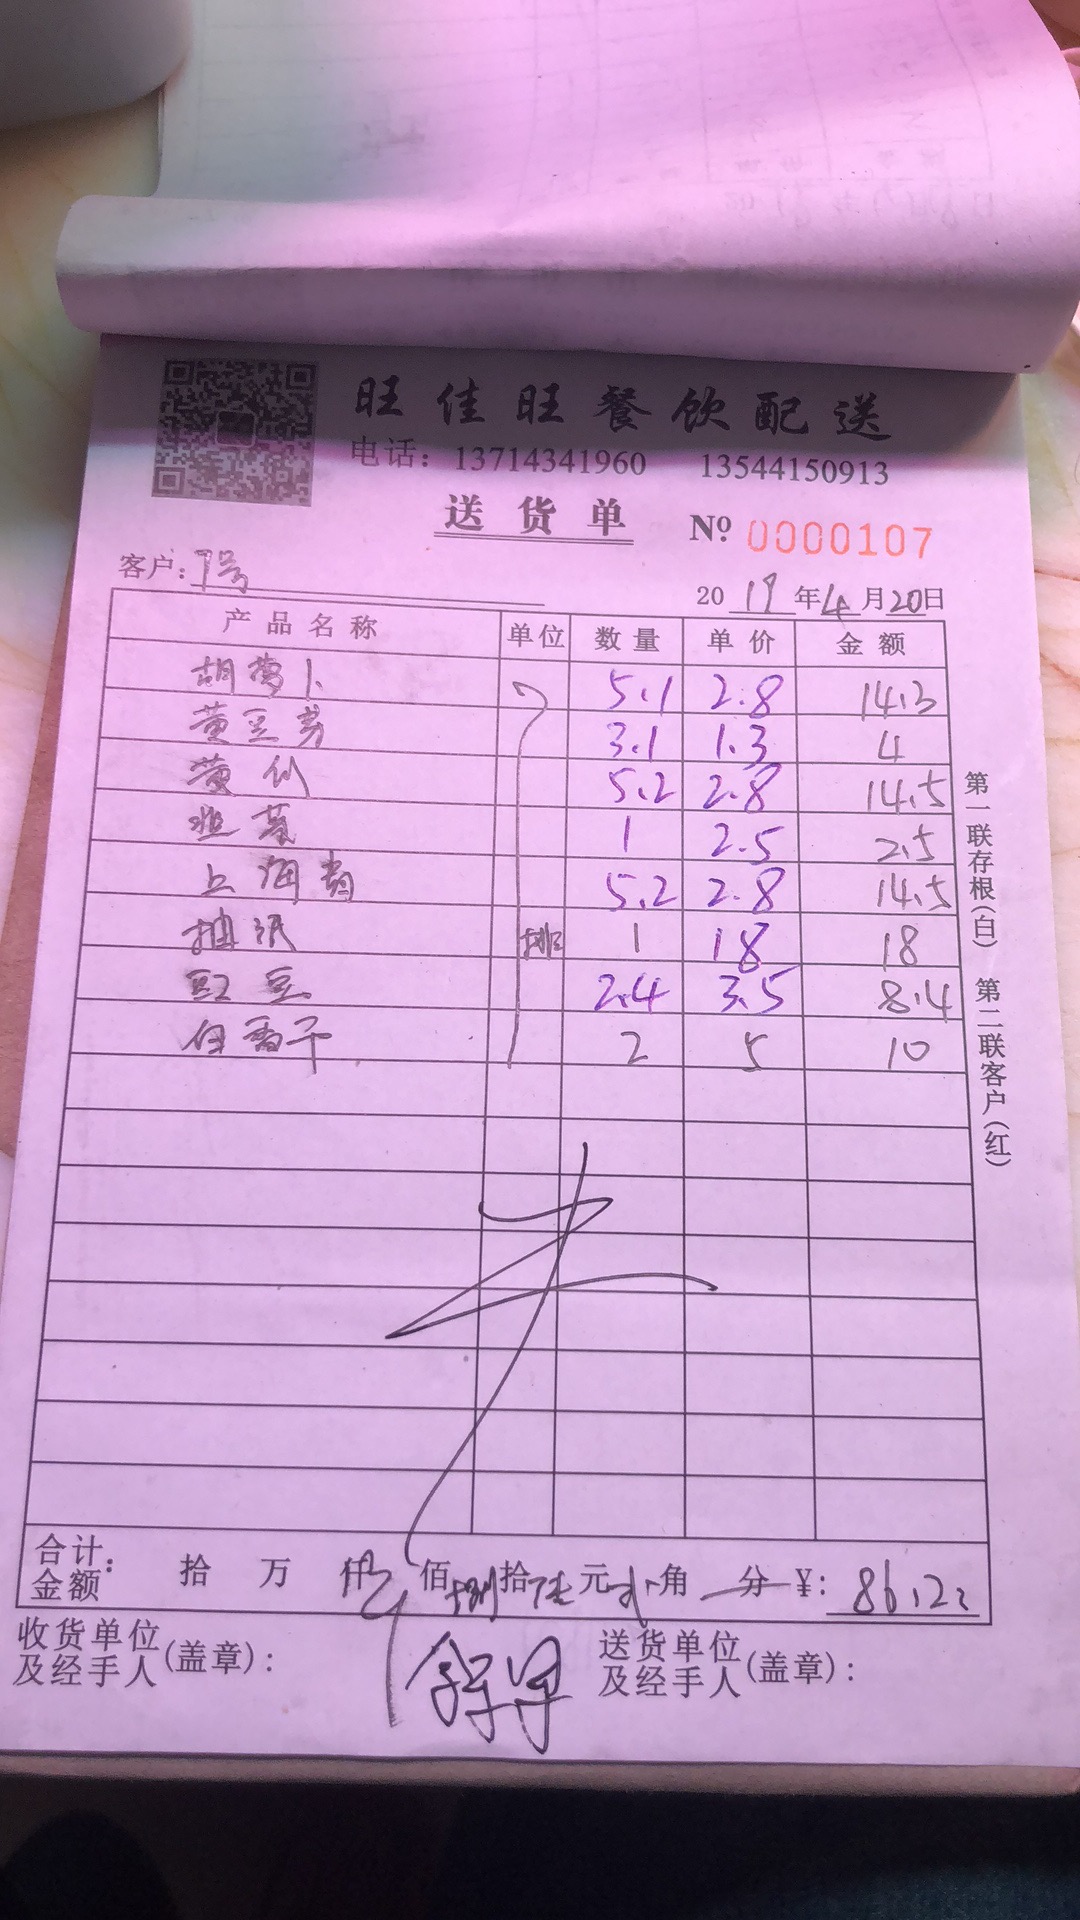 旺佳旺餐饮配送
电话：13714341960 13544150913
送货单 Nº 0000107
客户：7号 2019年4月20日
产品名称 单位 数量 单价 金额
胡萝卜 5.1 2.8 14.3
黄豆芽 3.1 1.3 4
黄瓜 5.2 2.8 14.5
韭菜 1 2.5 2.5
上海青 5.2 2.8 14.5
抽纸 排 1 18 18
豇豆 2.4 3.5 8.4
白香干 2 5 10
合计金额： 拾 万 仟 佰 捌拾 陆元 贰角 分 ¥：86.2
收货单位及经手人(盖章)： 送货单位及经手人(盖章)：
第一联存根(白) 第二联客户(红)